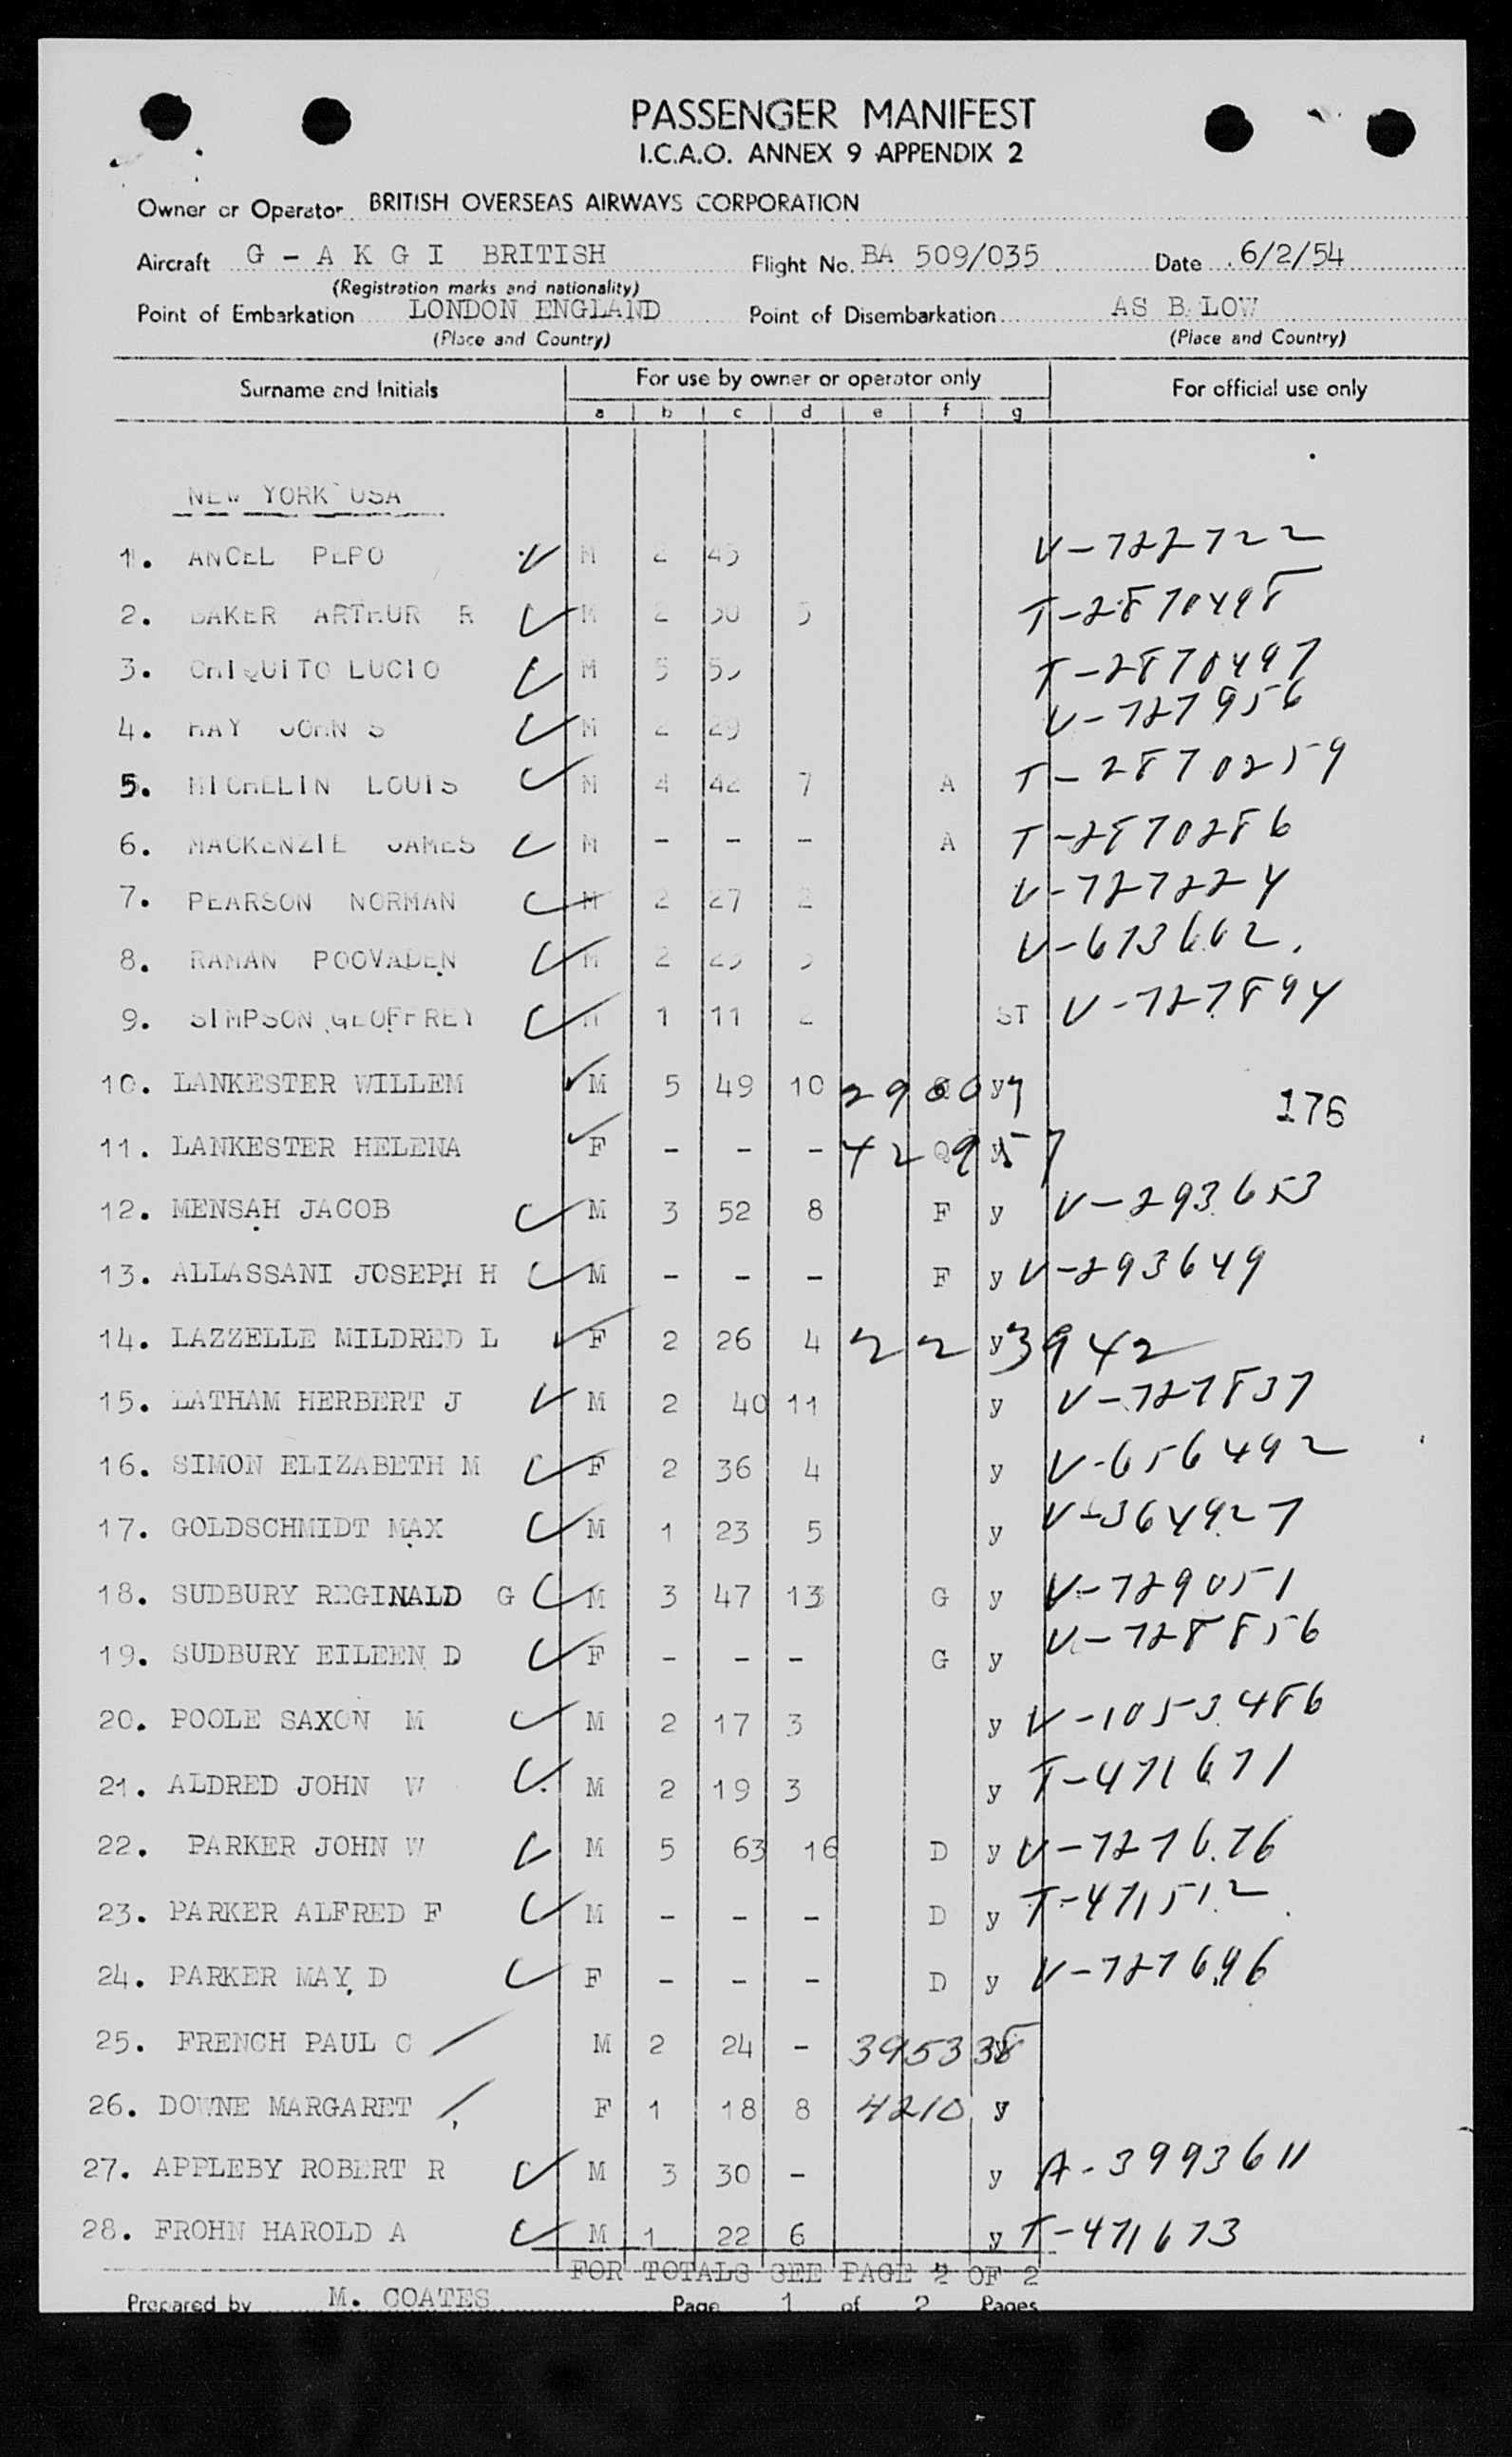 PASSENGER MANIFEST
I.C.A.O. ANNEX 9 APPENDIX 2
Owner or Operator BRITISH OVERSEAS AIRWAYS CORPORATION
Aircraft G - A K G I BRITISH Flight No. BA 509/035 Date 6/2/54
(Registration marks and nationality)
Point of Embarkation LONDON ENGLAND Point of Disembarkation AS B LOW
(Place and Country) (Place and Country)
Surname and Initials For use by owner or operator only For official use only
a b c d e f g
NEW YORK USA
1. ANCEL PEPO M 2 45 V-727722
2. BAKER ARTHUR R M 2 30 T-2870498
3. CHIQUITO LUCIO M 5 T-2870497
4. HAY JOHN S M 2 29 V-727956
5. MICHELIN LOUIS M 4 42 7 A T-2870259
6. MACKENZIE JAMES M - - - A T-2870286
7. PEARSON NORMAN M 2 27 2 V-727224
8. RAMAN POOVADEN M 2 V-673662.
9. SIMPSON GEOFFREY M 1 11 2 ST V-727894
10. LANKESTER WILLEM M 5 49 10 y 176
11. LANKESTER HELENA F - - - 42957 Q y
12. MENSAH JACOB M 3 52 8 F y V-293653
13. ALLASSANI JOSEPH H M - - - F y V-293649
14. LAZZELLE MILDRED L F 2 26 4 y 223942
15. LATHAM HERBERT J M 2 40 11 y V-727837
16. SIMON ELIZABETH M F 2 36 4 y V-656492
17. GOLDSCHMIDT MAX M 1 23 5 y V-364927
18. SUDBURY REGINALD G M 3 47 13 G y V-729051
19. SUDBURY EILEEN D F - - - G y V-728856
20. POOLE SAXON M M 2 17 3 y V-1053486
21. ALDRED JOHN W M 2 19 3 y T-471671
22. PARKER JOHN W M 5 63 16 D y V-727676
23. PARKER ALFRED F M - - - D y T-471512
24. PARKER MAY D F - - - D y V-727696
25. FRENCH PAUL C M 2 24 - 395338 y
26. DOWNE MARGARET F 1 18 8 4210 y
27. APPLEBY ROBERT R M 3 30 - y A-3993611
28. FROHN HAROLD A M 1 22 6 y T-471673
FOR TOTALS SEE PAGE 2 OF 2
Prepared by M. COATES Page 1 of 2 Pages